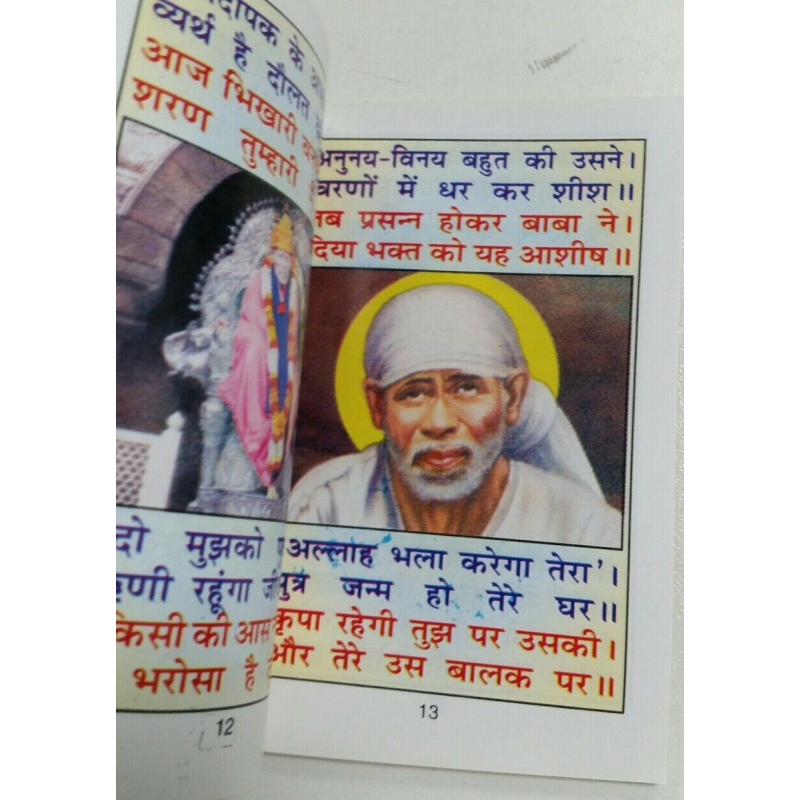 के
व्यर्थ है दौलत
आज भिखारी
शरण तुम्हारी
दो मुझको
रहूंगा
किसी की आस
भरोसा है
12
अनुनय-विनय बहुत की उसने।
में धर कर शीश॥
प्रसन्न होकर बाबा ने।
दिया भक्त को यह आशीष॥
अल्लाह भला करेगा तेरा'।
जन्म हो तेरे घर॥
कृपा रहेगी तुझ पर उसकी।
और तेरे उस बालक पर॥
13